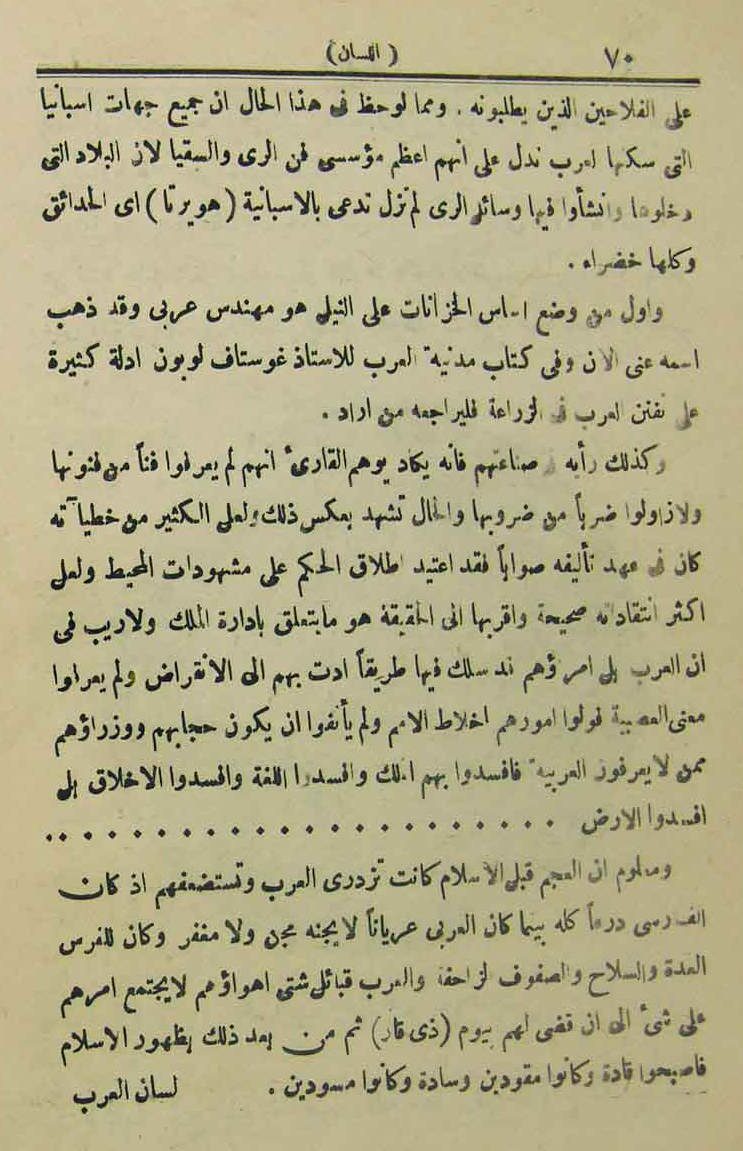 ٧٠ ( اللسان )
على الفلاحين الذين يطلبونه . ومما لوحظ فى هذا الحال ان جميع جهات اسبانيا
التى سكنها العرب تدل على انهم اعظم مؤسسى فن الرى والسقيا لان البلاد التى
دخلوها وانشأوا فيها وسائل الرى لم تزل تدعى بالاسبانية ( هويرتا ) اى الحدائق
وكلها خضراء .
واول من وضع اساس الخزانات على النيل هو مهندس عربى وقد ذهب
اسمه عنى الان وفى كتاب مدنية العرب للاستاذ غوستاف لوبون ادلة كثيرة
على تفنن العرب فى الزراعة فليراجعه من اراد .
وكذلك رأيه فى صناعتهم فانه يكاد يوهم القارئ انهم لم يعرفوا فناً من فنونها
ولازاولوا ضرباً من ضروبها والحال تشهد بعكس ذلك ولعل الكثير من خطيآته
كان فى عهد تأليفه صواباً فقد اعتيد اطلاق الحكم على مشهودات المحيط ولعل
اكثر انتقاداته صحيحة واقربها الى الحقيقة هو مايتعلق بادارة الملك ولاريب فى
ان العرب بل امراؤهم قد سلك فيها طريقاً ادت بهم الى الانقراض ولم يعرفوا
معنى العصبية فولوا امورهم اخلاط الامم ولم يأنفوا ان يكون حجابهم ووزراؤهم
ممن لايعرفون العربية فافسدوا بهم الملك وافسدوا اللغة وافسدوا الاخلاق بل
افسدوا الارض . . . . . . . . . . . . . . . . . . . . . .
ومعلوم ان العجم قبل الاسلام كانت تزدرى العرب وتستضعفهم اذ كان
الفارسى درعاً كله بينما كان العربى عرياناً لايجنه مجن ولا مغفر وكان للفرس
العدة والسلاح والصفوف الزاحفة والعرب قبائل شتى اهواؤهم لايجتمع امرهم
على شئ الى ان قضى لهم بيوم ( ذى قار ) ثم من بعد ذلك بظهور الاسلام
فاصبحوا قادة وكانوا مقودين وسادة وكانوا مسودين . لسان العرب